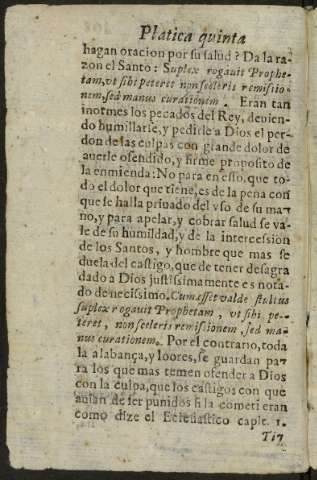 Platica quinta
hagan oracion por su salud? Da la ra-
zon el Santo: Suplex rogauit Prophe-
tam, vt sibi peteret non sceleris remissio-
nem, sed manus curationem. Eran tan
inormes los pecados del Rey, deuien-
do humillarse, y pedirle a Dios el per-
don de las culpas con grande dolor de
auerle ofendido, y firme proposito de
la enmienda: No para en esso, que to-
do el dolor que tiene, es de la pena con
que se halla priuado del vso de su ma-
no, y para apelar, y cobrar salud se va-
le de su humildad, y de la intercession
de los Santos, y hombre que mas se
duela del castigo, que de tener desagra
dado a Dios justissimamente es nota-
do de necissimo. Cum esset valde stultus
suplex rogauit Prophetam, vt sibi pe-
teret, non sceleris remissionem, sed ma-
nus curationem. Por el contrario, toda
la alabança, y loores, se guardan pa-
ra los que mas temen ofender a Dios
con la culpa, que los castigos con que
auian de ser punidos si la cometieran
como dize el Eclesiastico capit. 1.